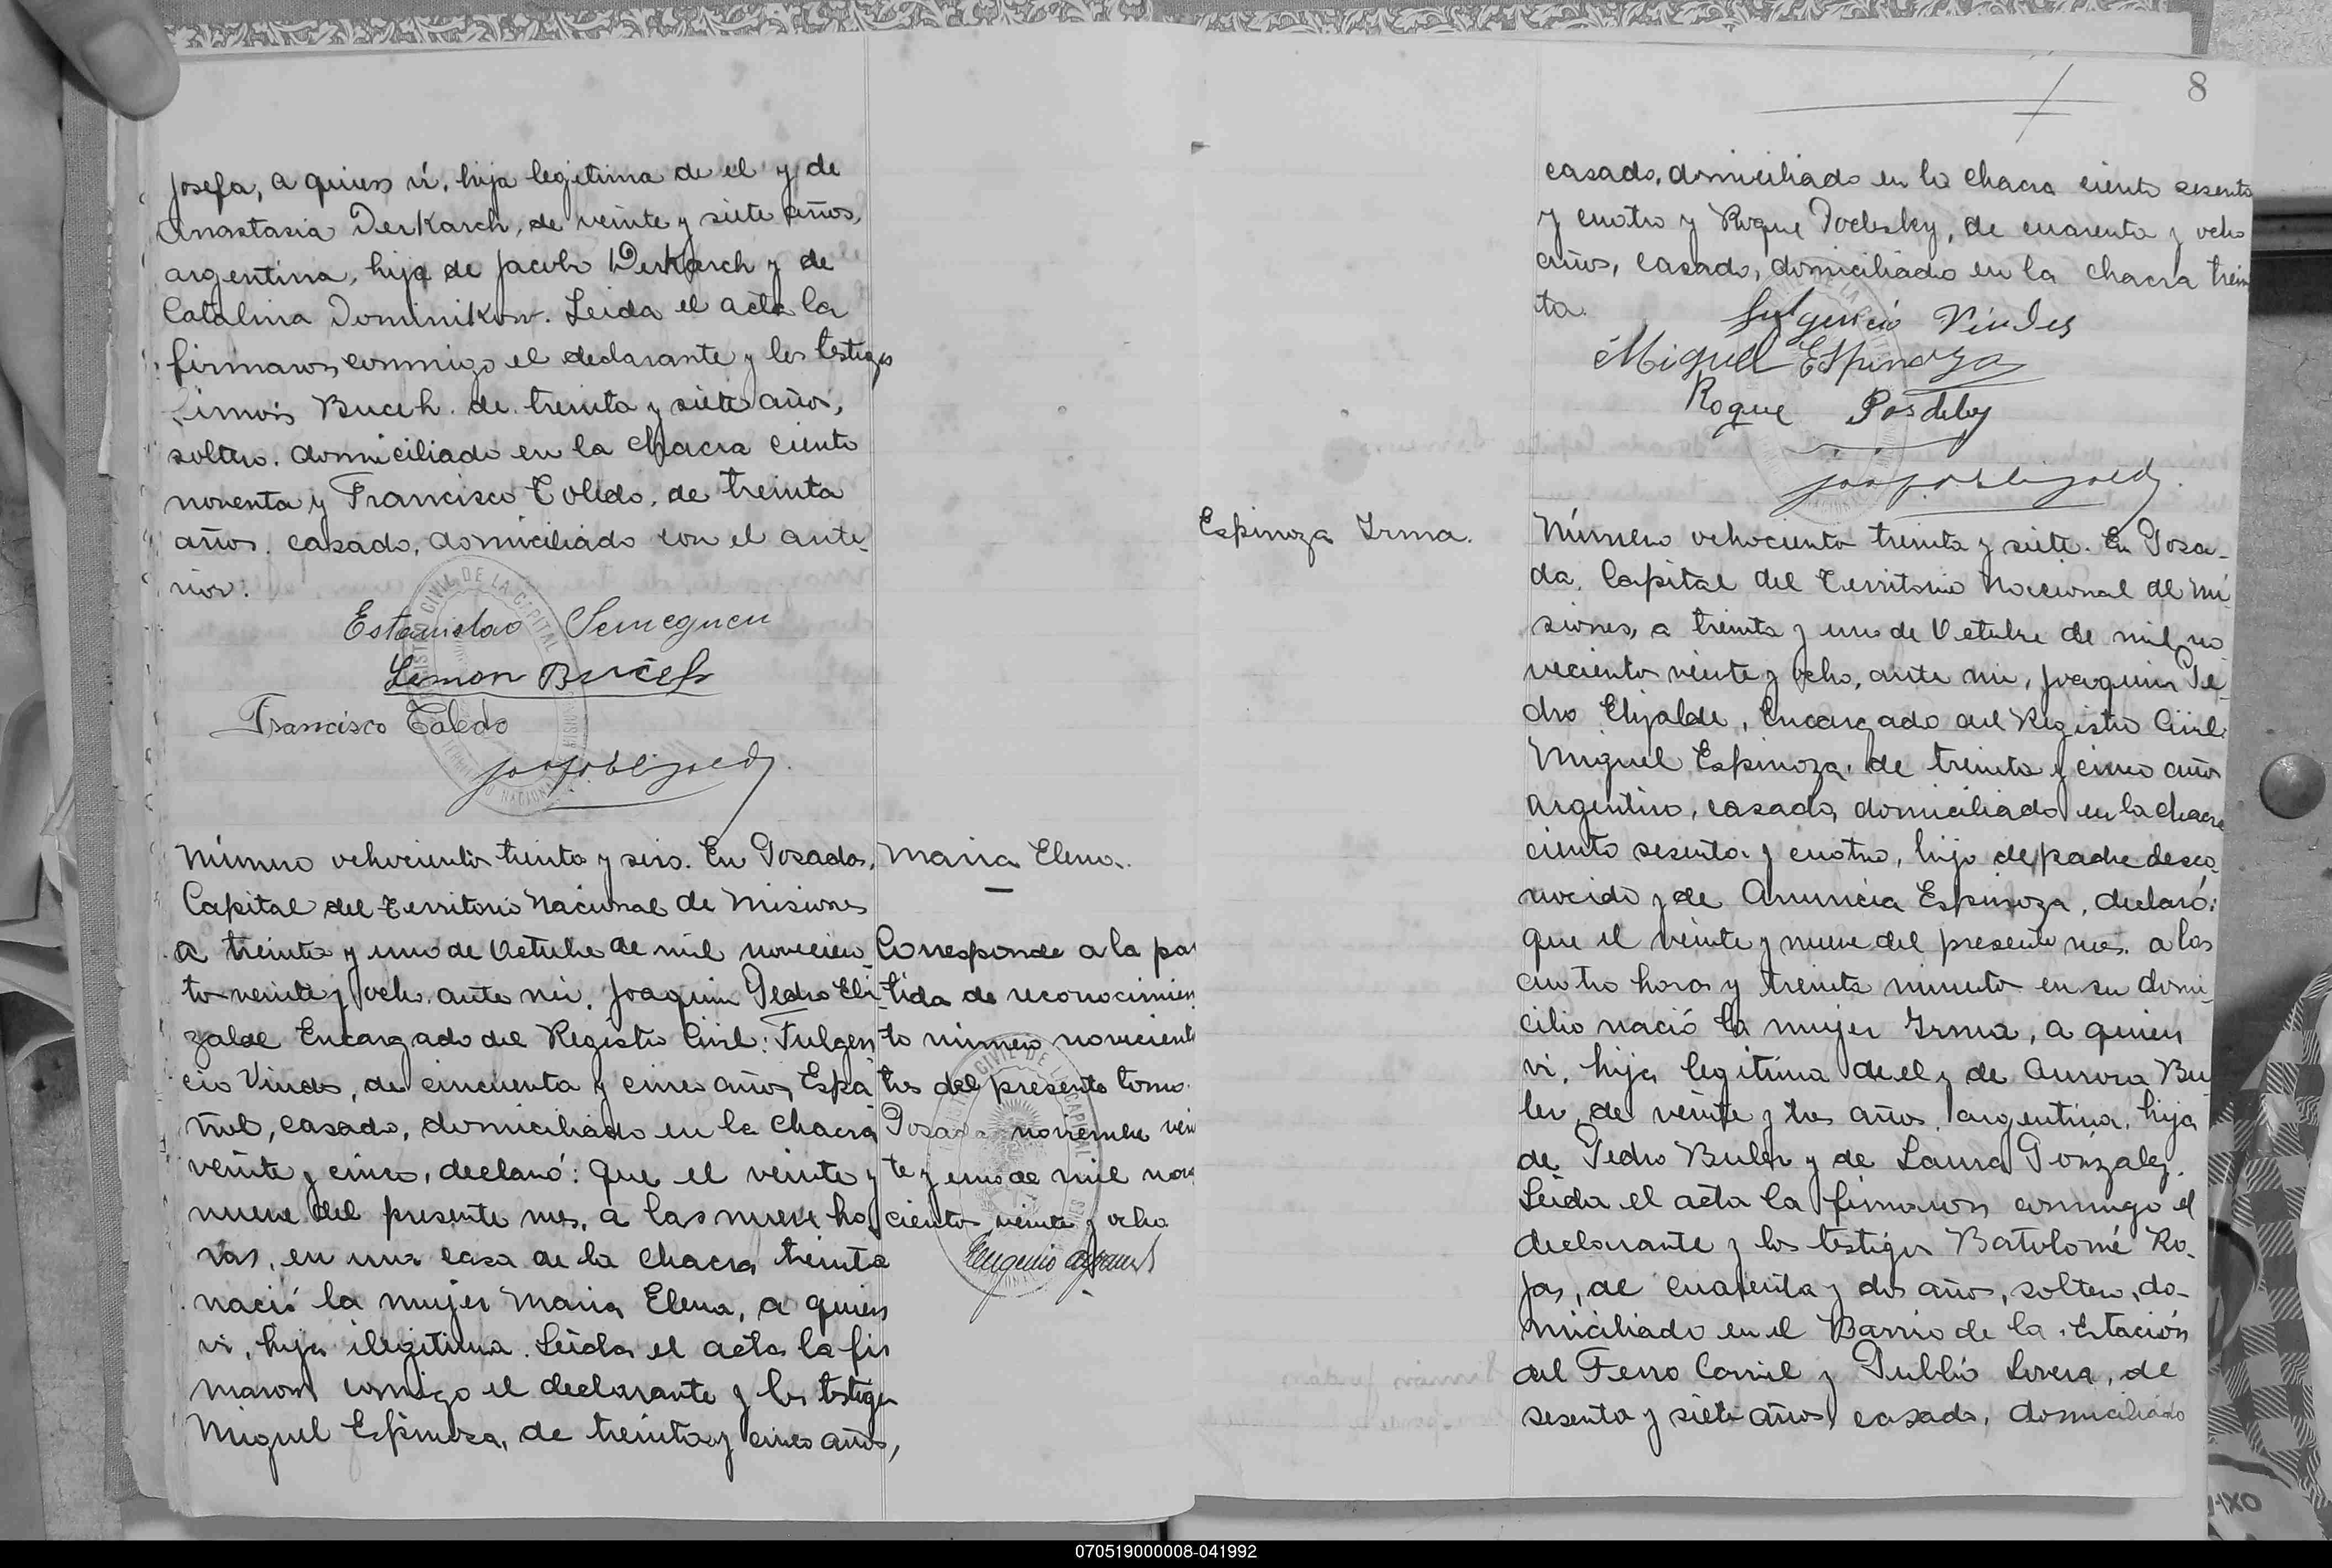 Josefa, a quien ví, hija legitima de el y de
Anastasia Derkarch, de veinte y siete años,
argentina, hija de Jacobo Derkarch y de
Catalina Dominikow. Leida el acta la
firmaron conmigo el declarante y los testigos
Simón Buceh. de treinta y siete años,
soltero. domiciliado en la chacra ciento
noventa y Francisco Toledo, de treinta
años. casado, domiciliado con el ante-
rior.
Estanislao Semeguen
Simon Buceh
Francisco Toledo
Número ochociento treinta y seis. En Posadas,
Capital del Territorio Nacional de Misiones
a treinta y uno de Octubre de mil novecien-
to veinte y ocho. ante mi, Joaquin Pedro Eli-
zalde Encargado del Registro Civil: Fulgen
cio Vindes, de cincuenta y cinco años, Espa
ñol, casado, domiciliado en la chacra
veinte y cinco, declaró: que el veinte y
nueve del presente mes, a las nueve ho-
ras, en una casa de la chacra treinta
nació la mujer Maria Elena, a quien
vi, hija ilegitima. Leida el acta la fir
maron conmigo el declarante y los testigos
Miguel Espinoza, de treinta y cinco años,
Maria Elena.
Corresponde a la par
tida de reconocimien
to número noveciento
tres del presente tomo.
Posadas noviembre vein
te y uno de mil nove
ciento veinte y ocho
Eugenio
8
casado, domiciliado en la chacra ciento sesenta
y cuatro y Roque Podelsky, de cuarenta y ocho
años, casado, domiciliado en la chacra trein
ta.
Fulgencio Vindes
Miguel Espinoza
Roque
Espinoza Irma.
Número ochociento treinta y siete. En Posa-
da, Capital del Territorio Nacional de Mi-
siones, a treinta y uno de Octubre de mil no
veciento veinte y ocho, ante mi, Joaquin Pe-
dro Elizalde, Encargado del Registro Civil:
Miguel Espinoza, de treinta y cinco años
argentino, casado, domiciliado en la chacra
ciento sesenta y cuatro, hijo de padre desco-
nocido y de Anuncia Espinoza, declaró:
que el veinte y nueve del presente mes. a las
cuatro horas y treinta minuto en su domi-
cilio nació la mujer Irma, a quien
vi, hija legitima de el y de Aurora Bu
ler, de veinte y tres años, argentina, hija
de Pedro Buler y de Laura Gonzalez.
Leida el acta la firmaron conmigo el
declarante y los testigos Bartolomé Ro-
jas, de cuarenta y dos años, soltero, do-
miciliado en el Barrio de la Estación
del Ferro Carril y Publio Lovera, de
sesenta y siete años, casado, domiciliado
070519000008-041992